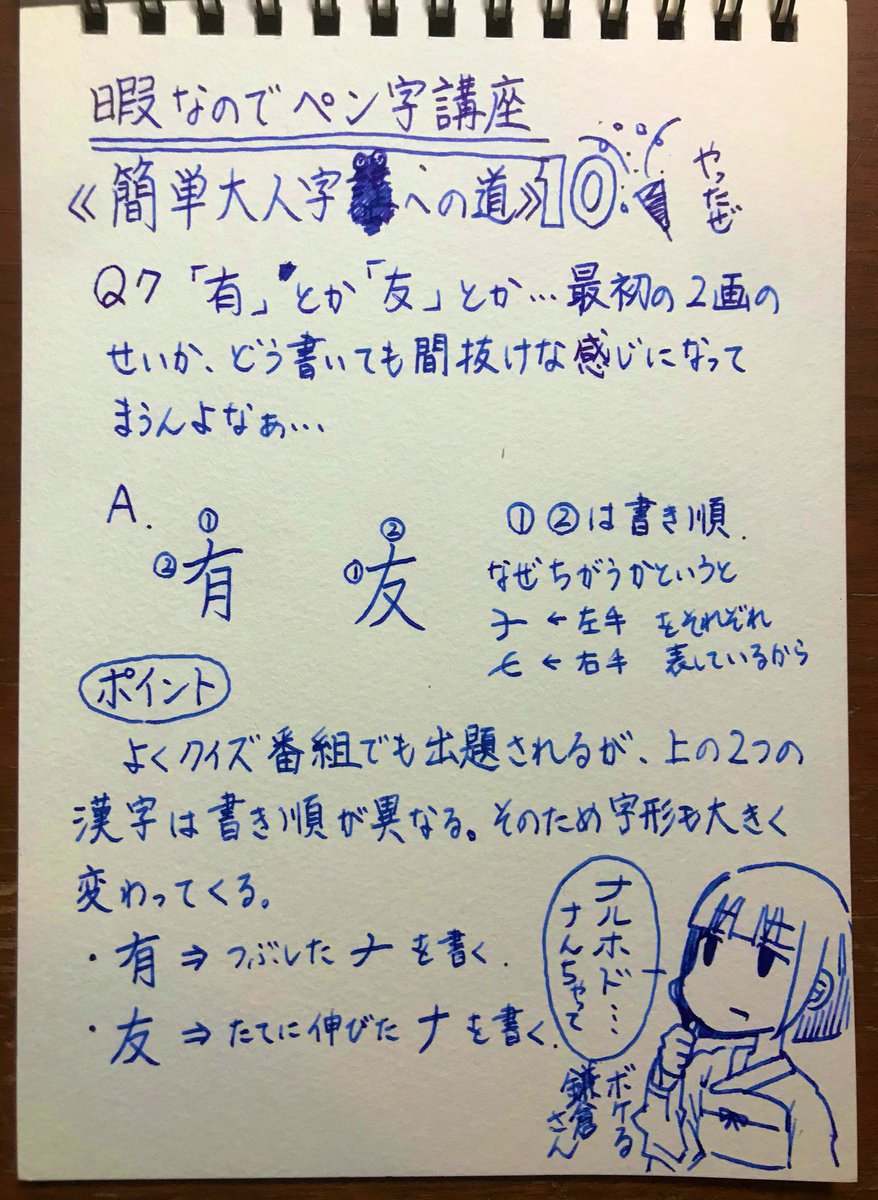 暇なのでペン字講座
《簡単大人字への道》10
やったぜ
Q7「有」とか「友」とか…最初の2画の
せいか、どう書いても間抜けな感じになって
まうんよなぁ…
A.
① ②
② 有 ① 友
①②は書き順.
なぜちがうかというと
ナ←左手 をそれぞれ
ナ←右手 表しているから
ポイント
よくクイズ番組でも出題されるが、上の2つの
漢字は書き順が異なる。そのため字形も大きく
変わってくる。
・有⇒つぶしたナを書く.
・友⇒たてに伸びたナを書く.
ナルホド…
ナんちゃって
ボケる
鎌倉さん